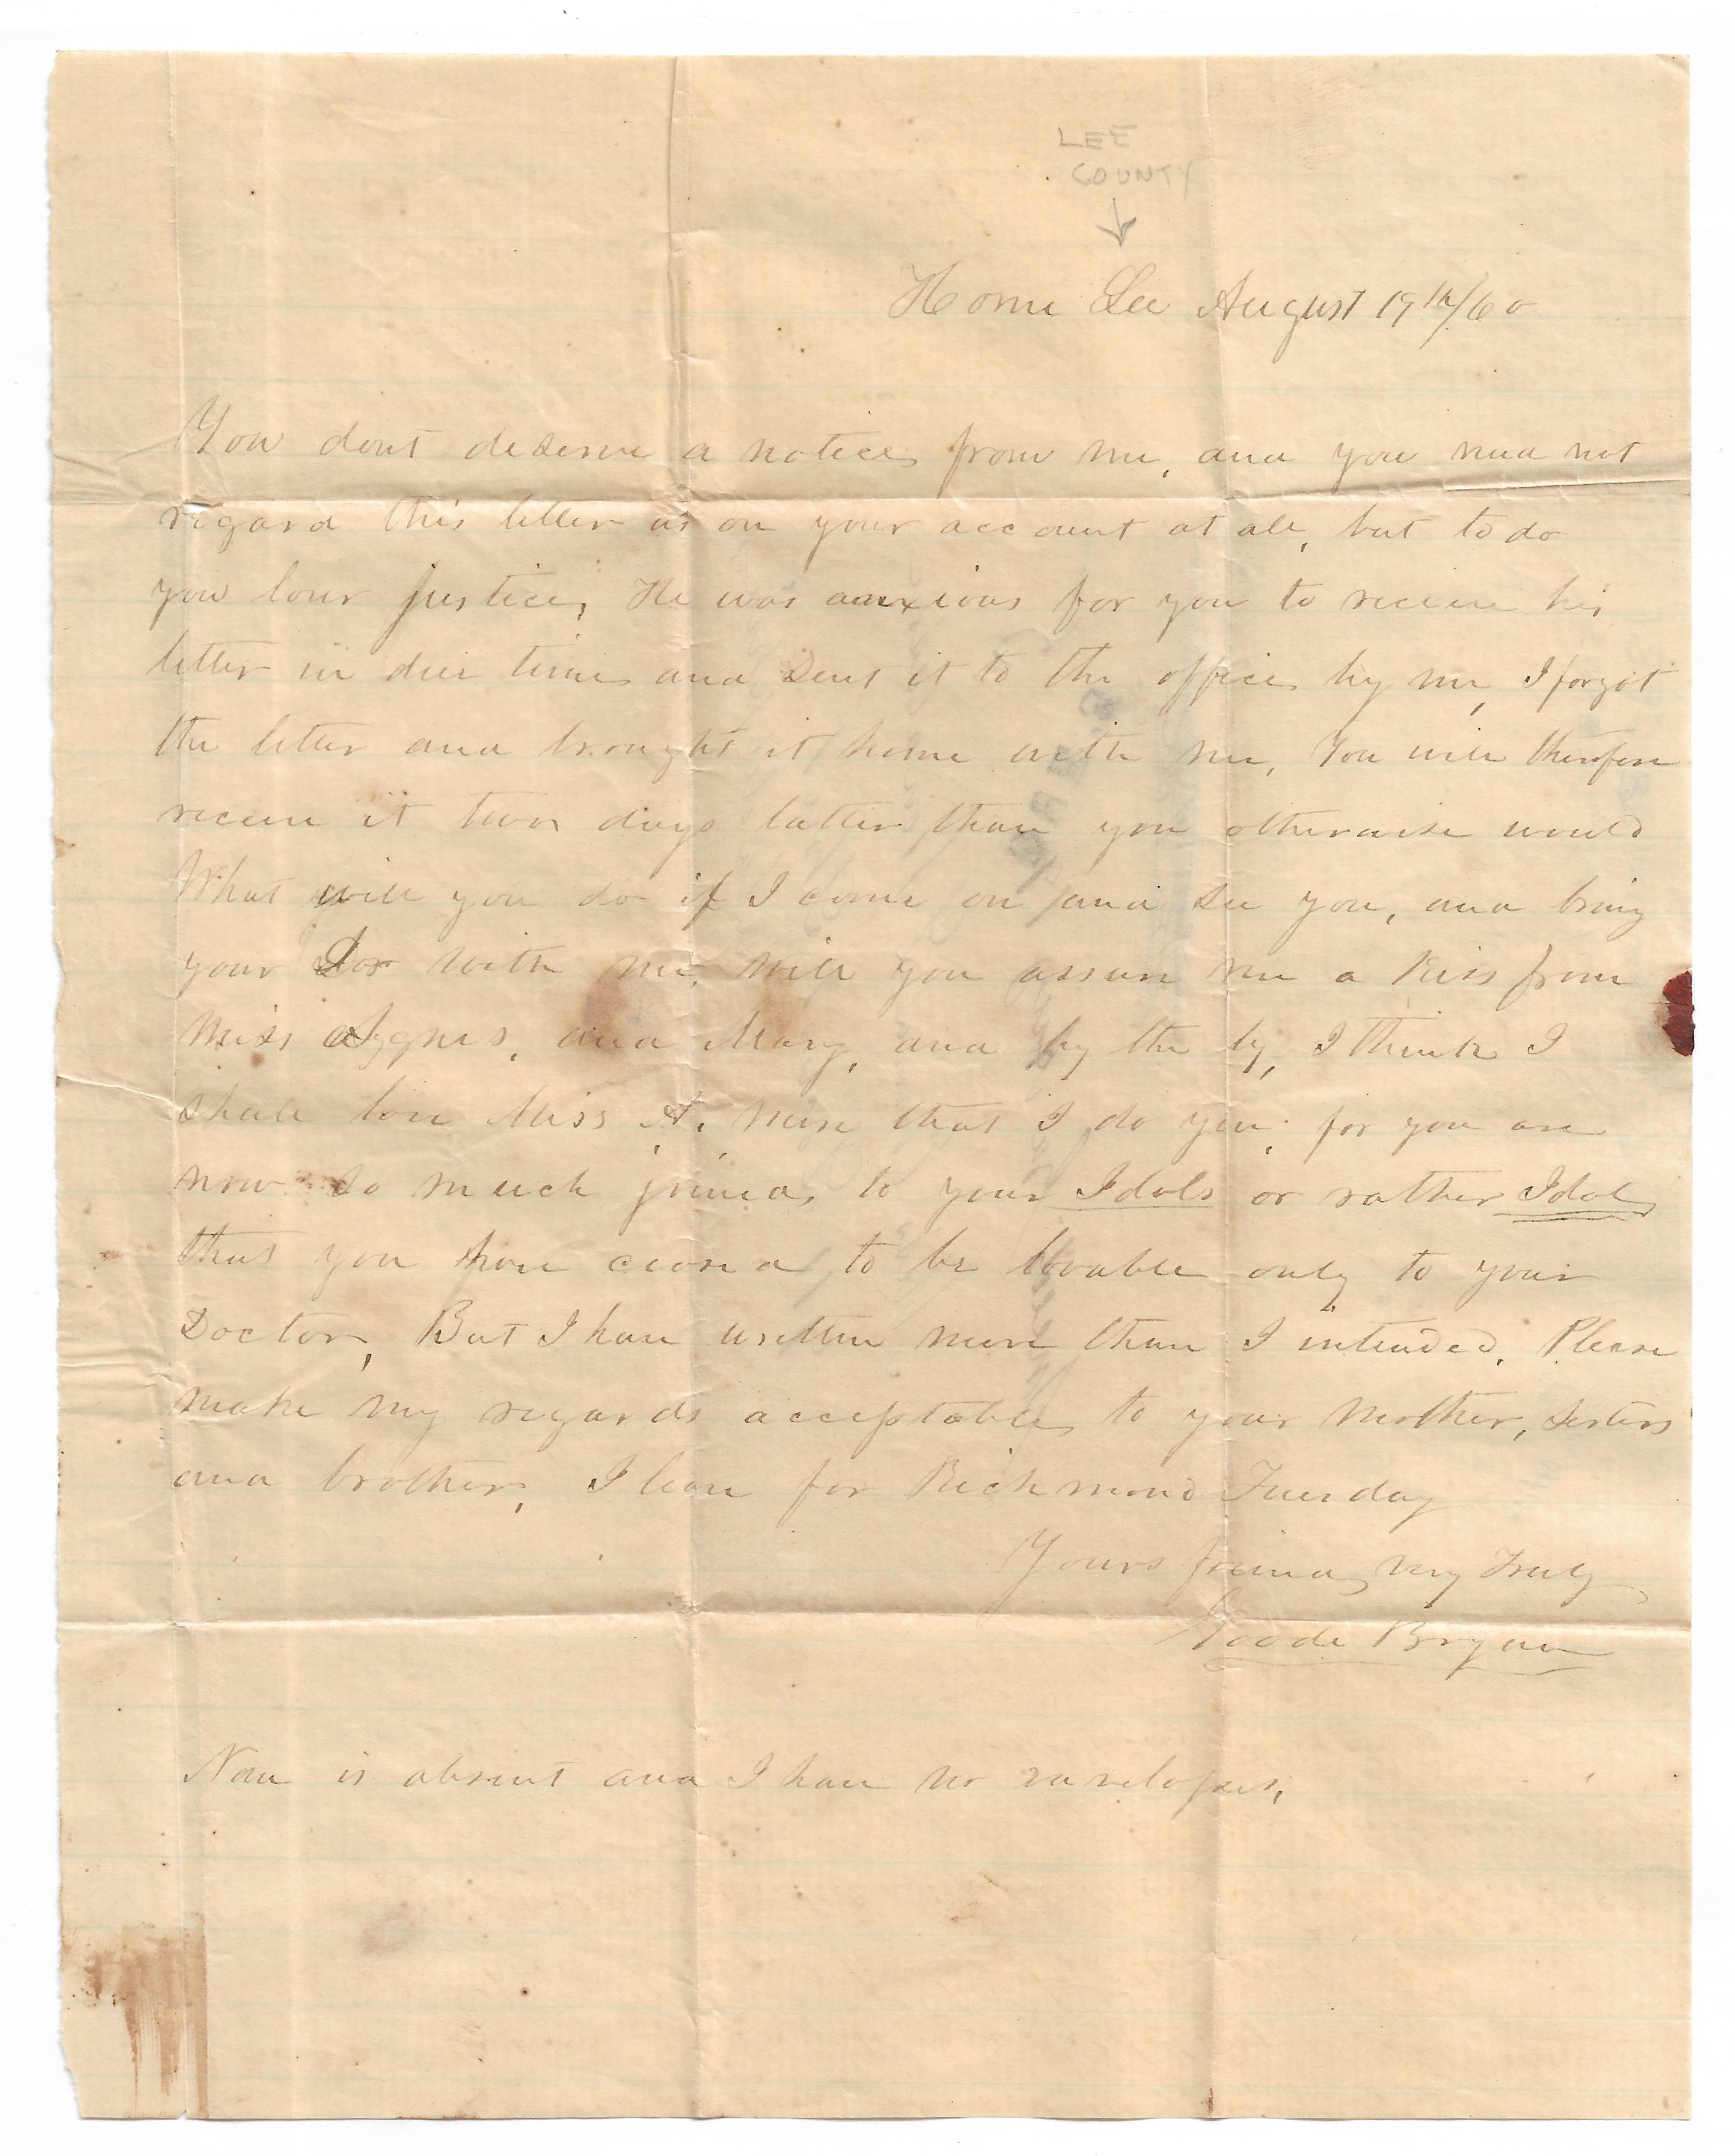 LEE
COUNTY
Home Lee August 19th/60
You dont deserve a notice from me, and you need not
regard this letter as on your account at all, but to do
you lover justice, He was anxious for you to receive his
letter in due time and sent it to the office by me, I forgot
the letter and brought it home with me, You will therefore
receive it two days latter than you otherwise would
What will you do if I come on and see you, and bring
your Dr with me, will you assure me a kiss from
Miss Agnes, and Mary, and by the by, I think I
shall love Miss A. more that I do you, for you are
now so much joined, to your Idols or rather Idol
that you have ceased to be lovable only to your
Doctor, But I have written more than I intended, Please
make my regards acceptable to your Mother, Sisters
and brother, I leave for Richmond Tuesday
Yours friend very Truly
Goode Bryan
Nan is absent and I have no envelopes,